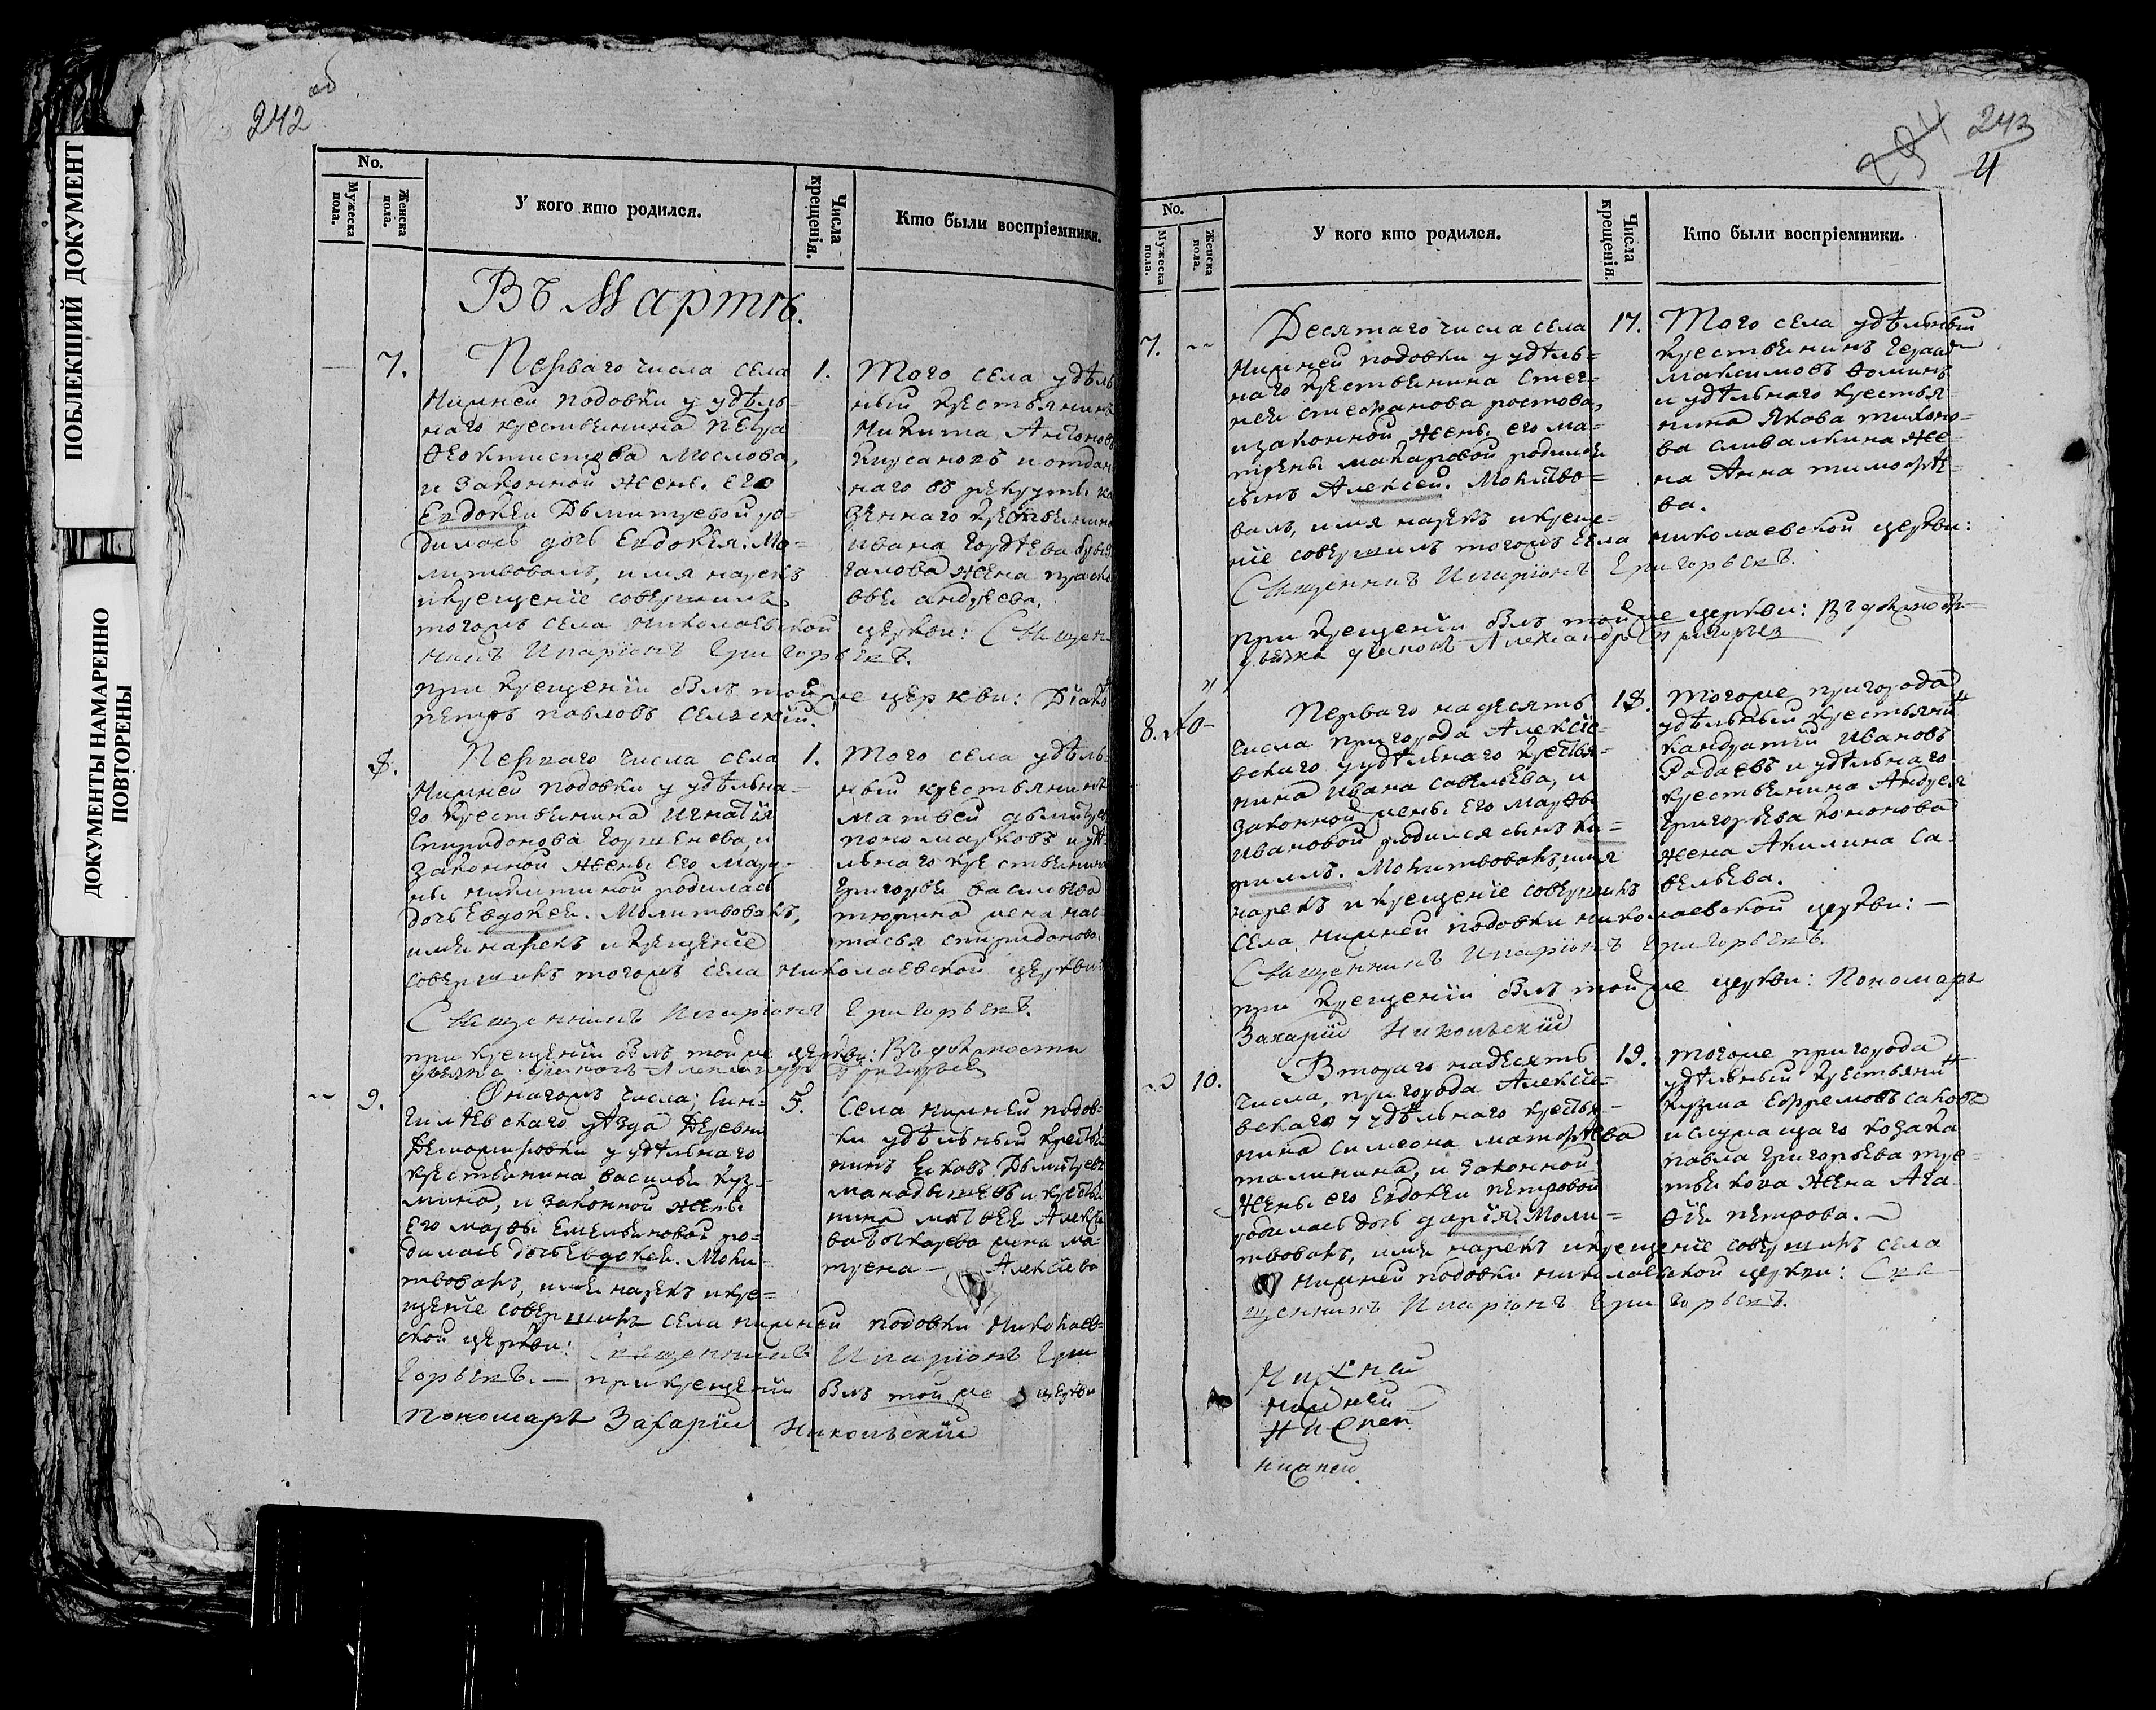 ПОБЛЕКШИЙ ДОКУМЕНТ
ДОКУМЕНТЫ НАМАРЕННО
ПОВТОРЕНЫ
242 об
No.
Мужеска пола.
Женска пола.
У кого кто родился.
Числа крещенія.
Кто были воспріемники.
Въ Мартѣ.
7.
Перваго числа села
Нижней подовки у удѣль-
наго крестьянина Петра
Феоктистова Маслова,
и законной жены его
Евдокеи Дьмитревой ро-
дилась дочь Евдокея. Мо-
литвовалъ, имя нарекъ
и крещеніе совершилъ
тогожъ села Николаевской церкви: Священ-
никъ Иларіонъ Григорьевъ.
при крещеніи былъ той же церкви: Діако
петръ павловъ Сельскій.
1.
Того села удѣль
ный крестьянинъ
Никита Антонов
Кирсановъ и отдан
наго въ рекруты ка
зеннаго крестьянина
Ивана Гордѣева
жена праско
вья андреева.
8.
Перваго числа села
Нижней подовки у удѣльна-
го крестьянина Игнатія
Спиридонова Горшенева, и
законной жены его Мари-
ны никитиной родилась
дочь Евдокея. Молитвовалъ,
имя нарекъ и крещеніе
совершилъ тогожъ села Николаевской церкви:
Священникъ Иларіонъ Григорьевъ.
при крещеніи былъ той же церкви: Въ должности
дьячка ученикъ Александръ Григорьев
1.
Того села удѣль-
ный крестьянинъ
Матвей дьмитрев
пономарковъ и удѣ-
льнаго крестьянина
Григорья васильева
тюрина жена нас-
тасья спиридонова.
9.
Онагожъ числа, Син-
гилѣевскаго уѣзда деревни
у удѣльнаго
крестьянина василья куз-
мина, и законной жены
его марфы Емельяновой ро-
дилась дочь Евдокея. Моли-
твовалъ, имя нарекъ и кре-
щеніе совершилъ села нижней подовки Николаев-
ской церкви: Священникъ Иларіонъ Гри
горьевъ. — при крещеніи былъ той же церкви
пономарь Захарій Никольскій
5.
Села нижней подов-
ки удѣльный крестья-
нинъ Яковъ Дьмитревъ
и крестья
нина матвея Алексѣ
жена ма-
трена — Алексѣева
243
4
No.
Мужеска пола.
Женска пола.
У кого кто родился.
Числа крещенія.
Кто были воспріемники.
7.
Десятаго числа села
Нижней подовки у удѣль-
наго крестьянина Сте
стефанова ростова,
и законной жены его ма-
трены макаровой родился
сынъ Алексей. Молитво-
валъ, имя нарекъ и креще-
ніе совершилъ тогожъ села николаевской церкви:
Священникъ Иларіонъ Григорьевъ.
при крещеніи былъ той же церкви: Въ должнос
дьячка ученикъ Александръ Григорьев
17.
Того села удѣльный
крестьянинъ
максимовъ Фоминъ
и удѣльнаго крестья
нина Якова тихоно-
ва сливалкина же-
на Анна тимофѣе-
ва.
8.
Перваго надесять
числа пригорода Алексѣе-
вскаго у удѣльнаго крестья-
нина Ивана савельева, и
законной жены его марфы
ивановой родился сынъ ки-
риллъ. Молитвовалъ, имя
нарекъ и крещеніе совершилъ
села нижней подовки николаевской церкви: —
Священникъ Иларіонъ Григорьевъ.
при крещеніи былъ той же церкви: Пономарь
Захарій Никольскій
18.
Тогоже пригорода
удѣльный крестьянин
кандратий Ивановъ
Радаевъ и удѣльнаго
крестьянина Андрея
Григорьева кононова
жена Акилина са-
вельева.
10.
Втораго надесять
числа, пригорода Алексѣе-
вскаго у удѣльнаго крестья-
нина симеона матфѣева
талинина, и законной
жены его Евдокеи петровой
родилась дочь дарія. Моли-
твовалъ, имя нарекъ и крещеніе совершилъ села
нижней подовки николаевской церкви: Свя-
щенникъ Иларіонъ Григорьевъ.
19.
тогоже пригорода
удѣльный крестьянин
кузма Ефремовъ саковъ
и служащаго козака
павла Григорьева тре-
тьякова жена Ага
фья петрова. —
Нижней
нижней
нижней